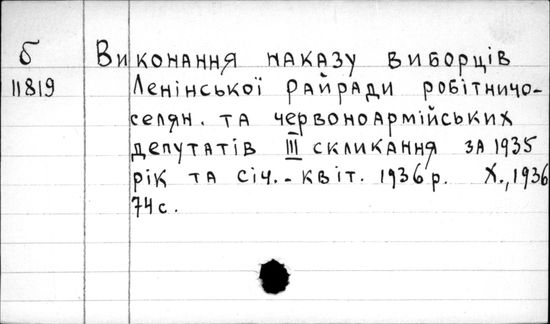 б Виконання наказу виборців
11819 Ленінської райради робітничо-
селян. та червоноармійських
депутатів III скликання за 1935
рік та січ.-квіт. 1936 р. Х., 1936
74 с.